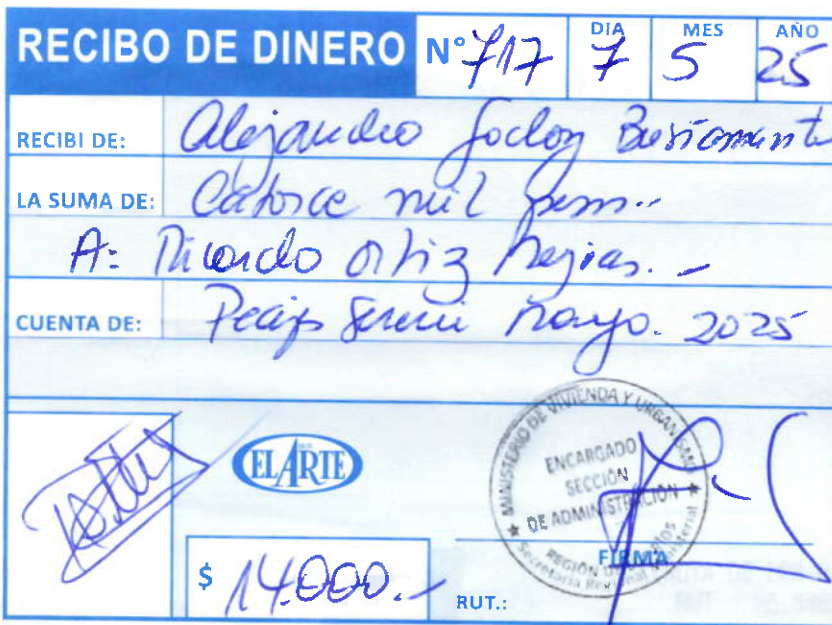 RECIBO DE DINERO N° 717 DIA 7 MES 5 AÑO 25
RECIBI DE: Alejandro Bustamante
LA SUMA DE: Catorce mil
A: Ricardo Ortiz
CUENTA DE: Mayo. 2025
MINISTERIO DE VIVIENDA Y URBANISMO
ENCARGADO
SECCIÓN
DE ADMINISTRACIÓN
REGIÓN DE
Secretaría Regional Ministerial
EL ARTE
$ 14.000.-
FIRMA
RUT.: